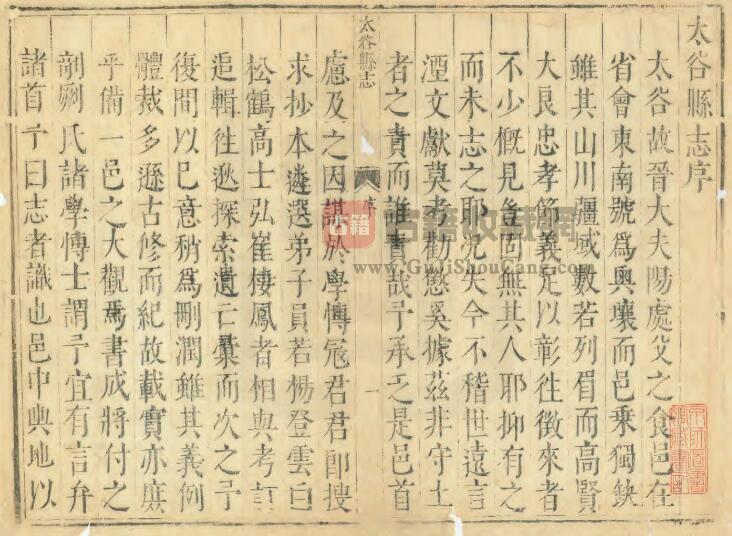 太谷縣志序
太谷故晉大夫陽處父之食邑在
省會東南號為輿壤而邑乘獨缺
雖其山川疆域數若列眉而高賢
大良忠孝節義足以彰徃徵來者
不少概見豈固無其人耶抑有之
而未志之耶况失今不稽世遠言
湮文獻莫考勸懲奚據茲非守土
者之責而誰責哉予承乏是邑首
太谷縣志
序
一
慮及之因謀於學博冦君君即搜
求抄本遴選弟子員若楊登雲白
松鶴高士弘崔棲鳳者相與考訂
追輯徃逖探索遺亡彙而次之予
復間以已意稍為刪潤雖其義例
體裁多遜古修而紀故載實亦庶
乎備一邑之大觀焉書成將付之
剞劂氏諸學博士謂予宜有言弁
諸首予曰志者識也邑中輿地以
古籍
古籍收藏網
www.GujiShouCang.com